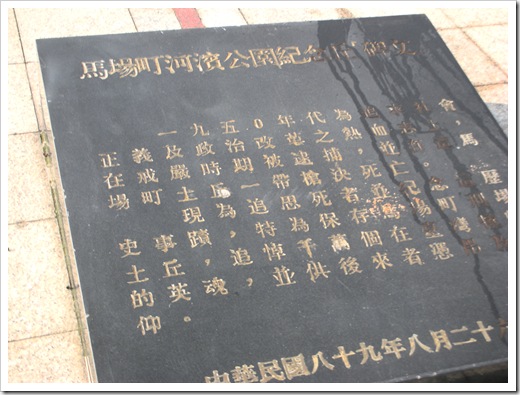 馬場町河濱公園紀念丘碑文
一九五0年代為追求社會
正義及政治改革之熱血志士,
在戒嚴時期被逮捕,並
馬
場町土丘一帶槍決死亡。
現為追思死者並紀念歷
史事蹟,特為保存馬場町
場
土丘,追悼千萬個在
的英魂,並供後來者
仰。
中華民國八十九年八月二十